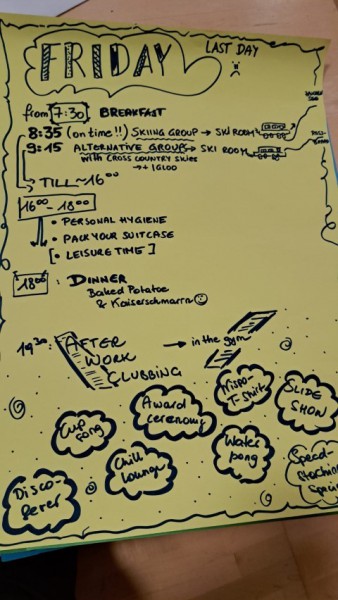 FRIDAY
LAST DAY
from 7:30 BREAKFAST
8:35 (on time!!) SKIING GROUP → SKI ROOM
9:15 ALTERNATIVE GROUP → SKI ROOM
with CROSS COUNTRY skies
→ + IGLOO
→ TILL ~ 16⁰⁰
16⁰⁰ - 18⁰⁰
• PERSONAL HYGIENE
• PACK YOUR SUITCASE
[• LEISURE TIME]
18⁰⁰ : DINNER
Baked Potatoe
& Kaiserschmarrn ☺
19³⁰: AFTER
WORK → in the gym
CLUBBING
Cup song
Award ceremony
T-Shirt
SLIDE SHOW
Chill Lounge
Water pong
Speed-
Disco-